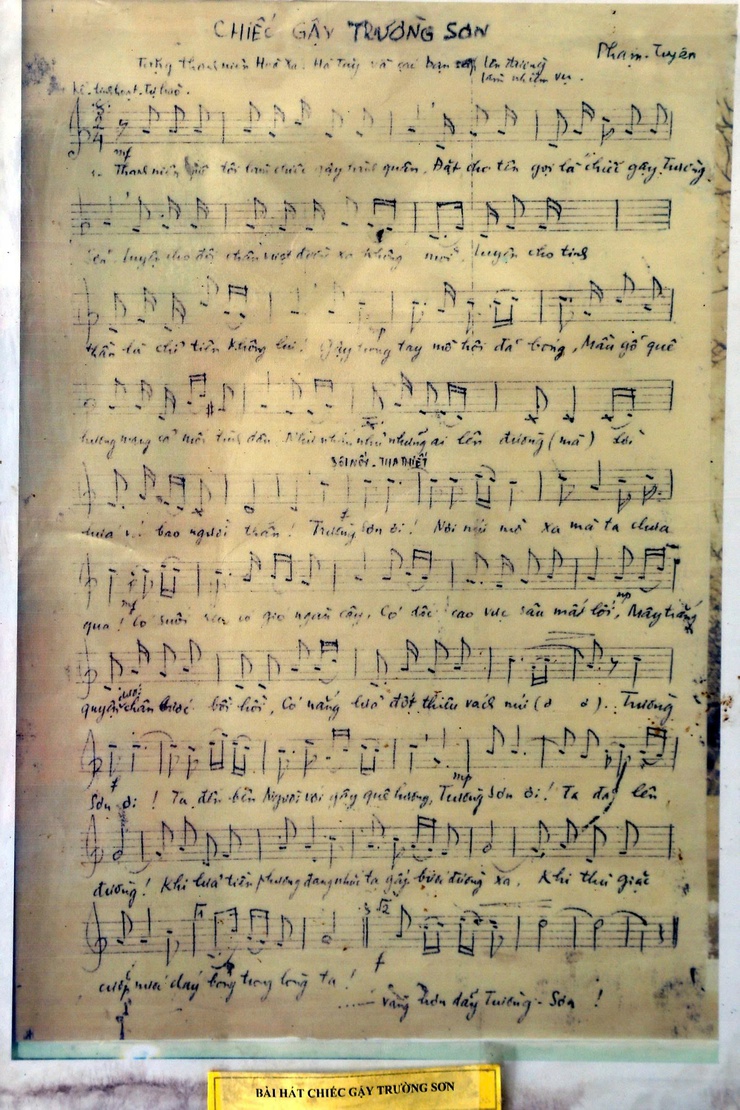 CHIẾC GẬY TRƯỜNG SƠN
Phạm-Tuyên
Tặng thanh niên Hoà Xá. Hà Tây và các bạn lên đường
làm nhiệm vụ.
mf
1. Thanh niên tôi làm chiếc gậy hành quân, Đặt cho tên gọi là chiếc gậy Trường
Sơn. Luyện cho đôi chân vượt đường xa không mỏi, luyện cho tinh
thần là chỉ tiến không lui! Gậy trong tay mồ hôi đã bóng, Mấu gỗ quê
hương mang cả mối tình dân. Như nhắn nhủ những ai lên đường (mà) lời
hứa với bao người thân! Trường Sơn ơi! Nơi núi mờ xa mà ta chưa
SÔI NỔI - THA THIẾT
f
qua! Có suối reo và gió ngàn cây, Có dốc cao vực sâu mất lối, Mây trắng
mf
mp
quyện dưới chân bước bồi hồi, Có nắng lửa đốt thiêu vách núi (ơ ơ). Trường
Sơn ơi! Ta đến bên Người với gậy quê hương, Trường Sơn ơi! Ta đây lên
f
mp
đường! Khi lửa tiền phương đang nhắc ta gậy bước đường xa. Khi thù giặc
cướp nước dấy trong lòng ta!
f
..... vàng hơn dãy Trường-Sơn!
BÀI HÁT CHIẾC GẬY TRƯỜNG SƠN